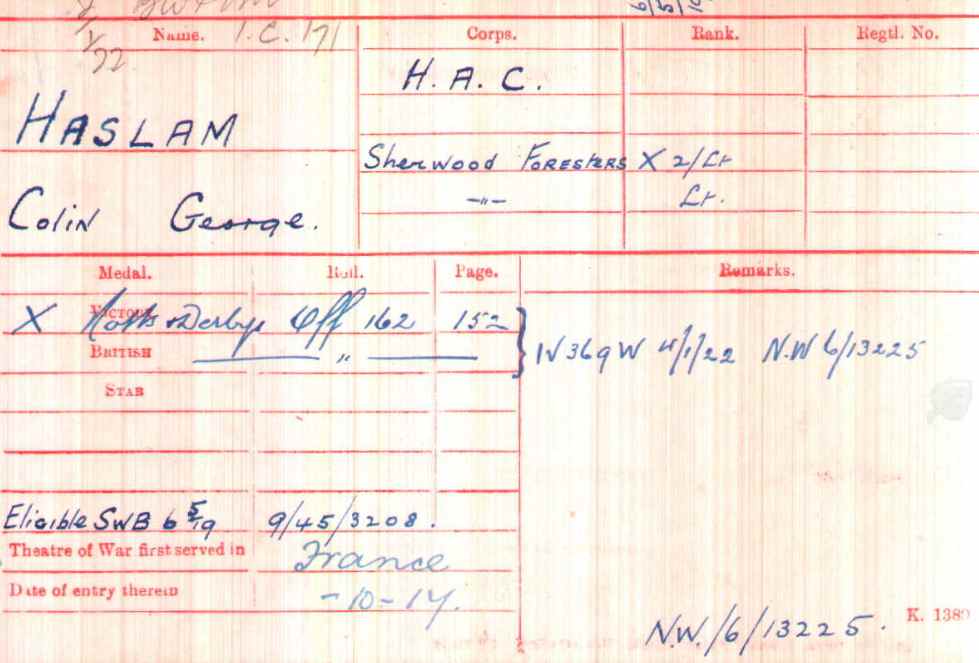 Name. I.C. 171 Corps. Rank. Regtl. No.
22
H.A.C.
HASLAM
Sherwood Foresters X 2/Lt
Colin George. -"- Lt.
Medal. Roll. Page. Remarks.
X Victory Notts & Derbys Off 162 152
British " IV 369W 4/1/22 N.W 6/13225
Star
Eligible SWB 6 5/19 9/45/3208.
Theatre of War first served in France
Date of entry therein -10-17.
N.W./6/13225. K. 1380